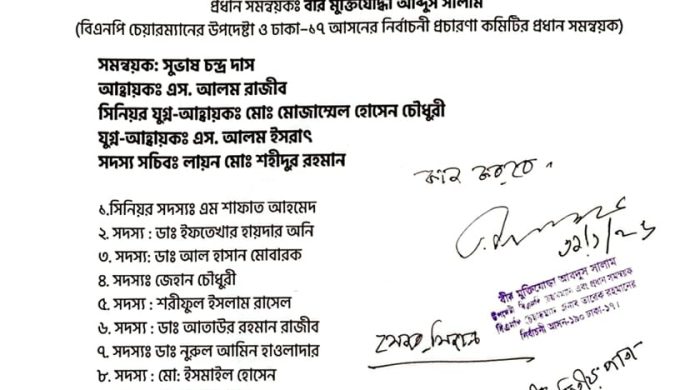 প্রধান সমন্বয়কঃ বীর মুক্তিযোদ্ধা আব্দুস সালাম
(বিএনপি চেয়ারম্যানের উপদেষ্টা ও ঢাকা-১৭ আসনের নির্বাচনী প্রচারণা কমিটির প্রধান সমন্বয়ক)
সমন্বয়ক: সুভাষ চন্দ্র দাস
আহ্বায়কঃ এস. আলম রাজীব
সিনিয়র যুগ্ন-আহ্বায়কঃ মোঃ মোজাম্মেল হোসেন চৌধুরী
যুগ্ন-আহ্বায়কঃ এস. আলম ইসরাৎ
সদস্য সচিবঃ লায়ন মোঃ শহীদুর রহমান
১.সিনিয়র সদস্যঃ এম শাফাত আহমেদ
২. সদস্য : ডাঃ ইফতেখার হায়দার অনি
৩. সদস্য: ডাঃ আল হাসান মোবারক
৪. সদস্যঃ জেহান চৌধুরী
৫. সদস্য : শরীফুল ইসলাম রাসেল
৬. সদস্য : ডাঃ আতাউর রহমান রাজীব
৭. সদস্যঃ ডাঃ নুরুল আমিন হাওলাদার
৮. সদস্য : মো: ইসমাইল হোসেন
বীর মুক্তিযোদ্ধা আবদুস সালাম